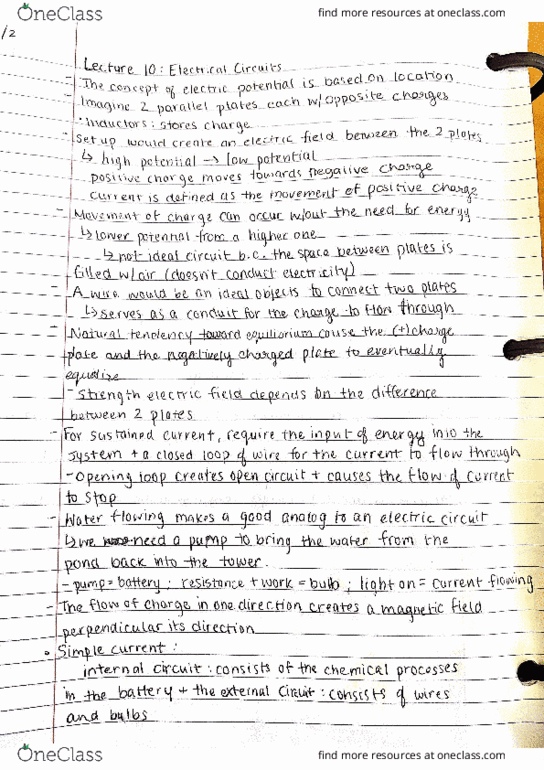 OneClass
find more resources at oneclass.com
/2
Lecture 10: Electrical Circuits
- The concept of electric potential is based on location
Imagine 2 parallel plates each w/opposite charges
• Inductors: stores charge
- Set up would create an electric field between the 2 plates
↳ high potential → low potential
positive charge moves towards negative charge
current is defined as the movement of positive charge
- Movement of charge can occur w/out the need for energy
↳ lower potential from a higher one
↳ not ideal circuit b.c. the space between plates is
filled w/air (doesn't conduct electricity)
- A wire would be an ideal objects to connect two plates
↳ serves as a conduit for the charge to flow through
- Natural tendency toward equilibrium cause the (+) charge
plate and the negatively charged plate to eventually
equalize
- Strength electric field depends on the difference
between 2 plates
- For sustained current, require the input of energy into the
system + a closed loop of wire for the current to flow through
- Opening loop creates open circuit + causes the flow of current
to stop
- Water flowing makes a good analog to an electric circuit
↳ we need a pump to bring the water from the
pond back into the tower.
- pump = battery; resistance + work = bulb; light on = current flowing
- The flow of charge in one direction creates a magnetic field
perpendicular its direction
• Simple current:
internal circuit: consists of the chemical processes
in the battery + the external circuit: consists of wires
and bulbs
OneClass
find more resources at oneclass.com